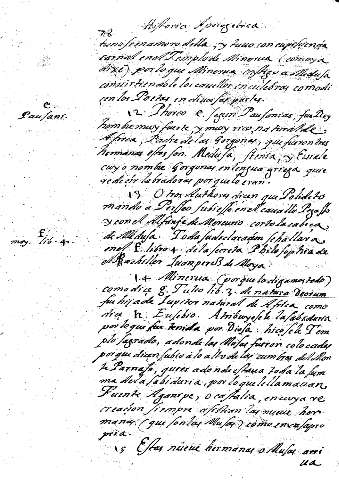 Historia Apologetica
78
tuno se enamoro della, y tuvo con cupiscencia
carnal en el Templo de Minerva (como ya
dixe) por lo que Minerva instigo a Medusa
convirtiendole los cavellos en culebras como di
cen los Poetas en diversas partes.
C.
Pausani.
12 Phorco e. segun Pausanias, fue Rey
hombre muy fuerte, y muy rico, natural de
Africa, Padre de las Gorgonas, que fueron tres
hermanas estas son. Medusa, Stenia, y Euriale
cuyo nombre Gorgonas en lengua griega quie
re decir labradoras por que lo eran.
13 Otros Authores dicen que
mando a Perseo, subiese en el cavallo Pegaso
y con el Alfange de Mercurio corto la cabeza
de Medusa. Toda su declaracion se hallara
moy. lib. 4.
en el libro 4. de la secreta Philosophia de
el Bachiller Juan Perez de Moya.
14 Minerva (por que lo digamos todo)
como dice g. Tulio lib. 3. de natura Deorum
fue hija de Jupiter natural de Africa como
dice h. Eusebio. Atribuyesele la sabiduria
por lo que fue tenida por Diosa. hizosele Tem
plo sagrado, adonde las Musas fueron colocadas
por que dizen subio a lo alto de las cumbres del Mon
te Parnaso, que es adonde estava toda la sum
ma de la sabiduria, por lo que le llamavan
Fuente Aganipe, o castalia, en cuya re
creacion siempre asistian las nueve her
manas (que son las Musas) como en casa pro
pria.
15 Estas nueve hermanas o Musas
va